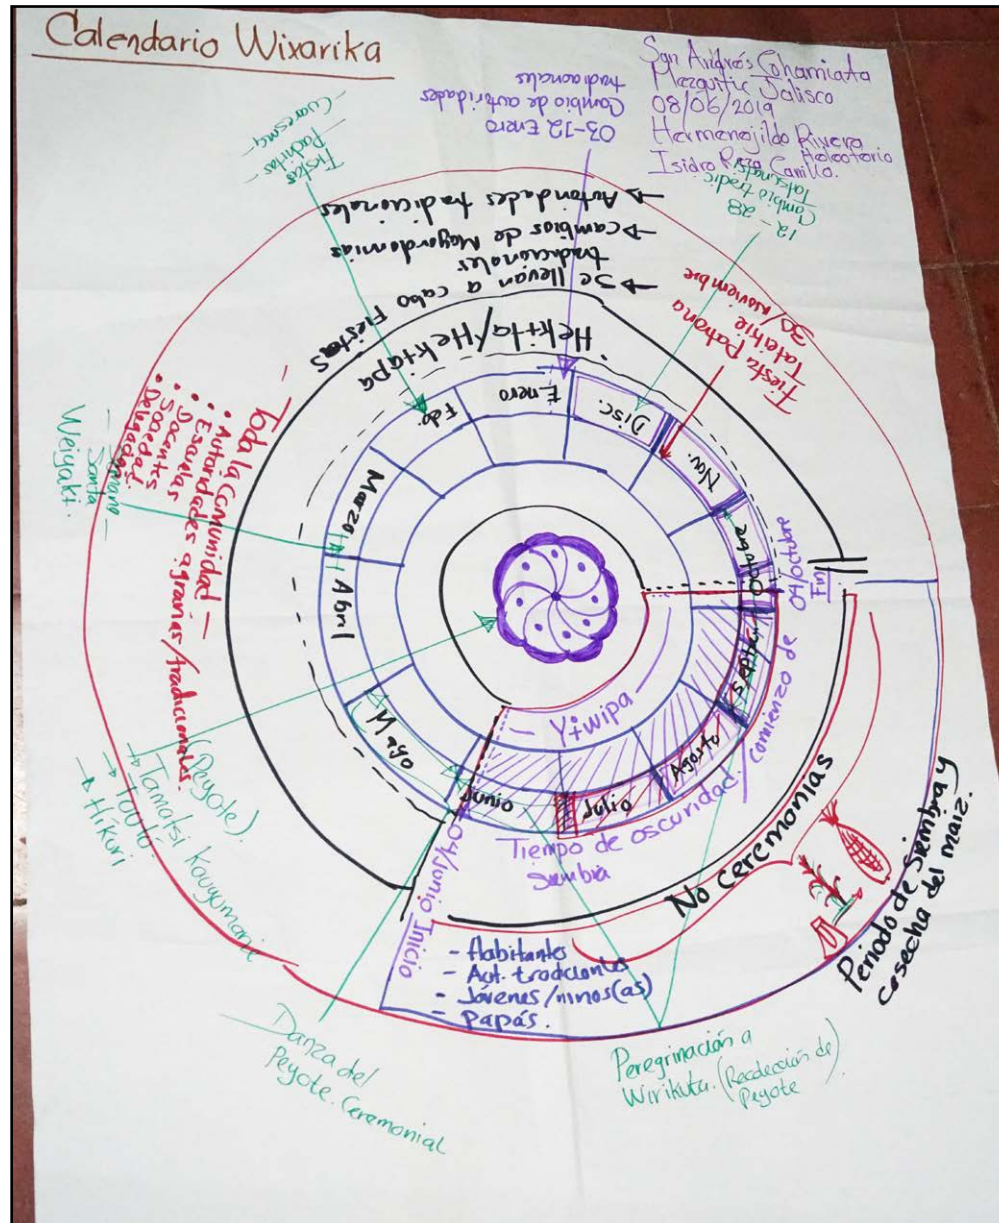 Calendario Wixarika
San Andrés Cohamiata
Mezquitic Jalisco
08/06/2019
Hermenejildo Rivera
Isidro Reza Carrillo.
03-12 Enero
Cambio de autoridades
tradicionales
Fiestas
Pachitas -
- Cuaresma -
12 - 28
Cambio tradic
Fiesta Patrona
Tateikie
30/Noviembre
→ Se llevan a cabo Fiestas
tradicionales
→ cambios de Mayordomias
→ Autoridades tradicionales
Hekita/Hektapa
Enero
Feb.
Marzo
Abril
Mayo
Junio
Julio
Agosto
Octubre
Nov.
Disc.
- Toda la comunidad -
• Autoridades agrarias/tradicionales.
• Escuelas
• Docentes
• Delegados.
- Semana -
Santa
Weiyakt.
(Peyote).
Tamatsi Kauyumarie
→ Tuutú.
→ Híkuri
- Y+wipa -
Tiempo de oscuridad / comienzo de
Siembra
04/Octubre
Fin
04/Junio Inicio
No ceremonias
Periodo de siembra y
cosecha del maiz.
- Habitantes
- Aut. tradciantes
- Jóvenes/ninos(as)
- Papás.
Danza del
Peyote. Ceremonial
Peregrinación a
Wirikuta. (Recolección de)
Peyote